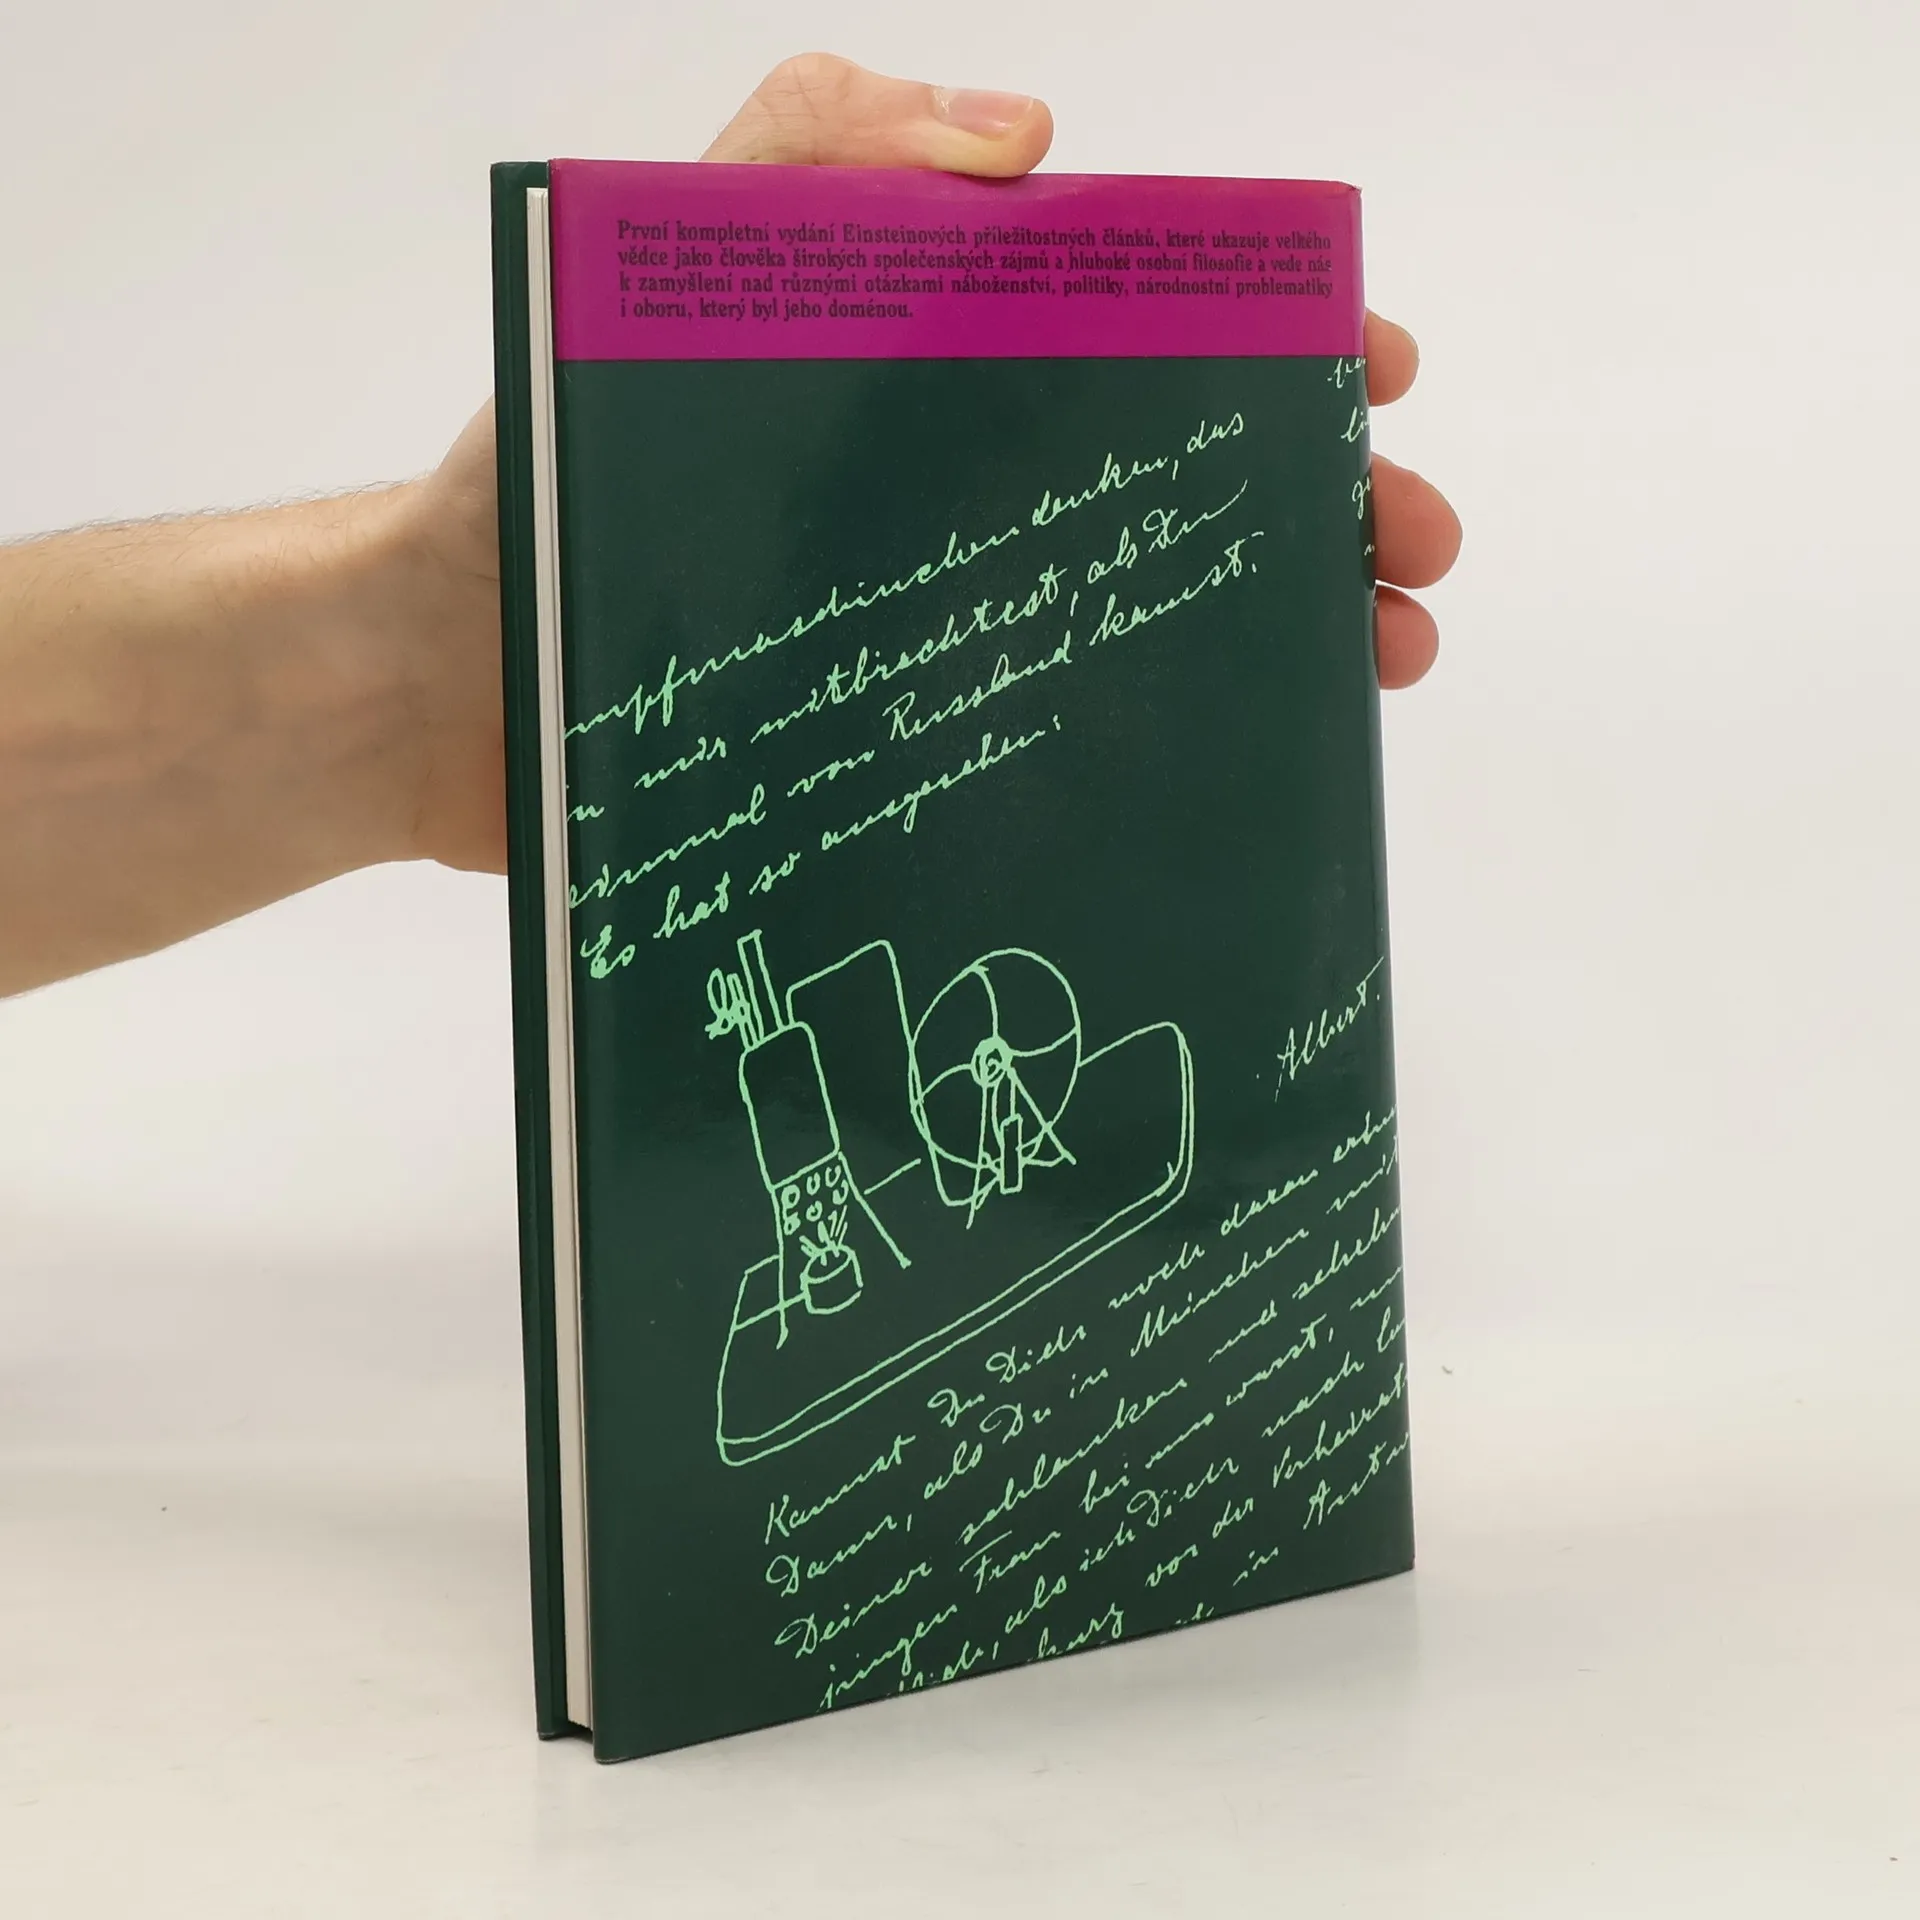 První kompletní vydání Einsteinových příležitostných článků, které ukazuje velkého
vědce jako člověka širokých společenských zájmů a hluboké osobní filosofie a vede nás
k zamyšlení nad různými otázkami náboženství, politiky, národnostní problematiky
i oboru, který byl jeho doménou.
mpfmaschinchen denken, das
mir mitbrachtest, als Du
einmal von Russland kamst.
Es hat so ausgesehen:
Albert.
Kannst Du Dich noch daran
Dauer, als Du in München mit
Deiner schlanken und
jungen Frau bei uns warst,
als ich Dich nach
kurz vor der
in